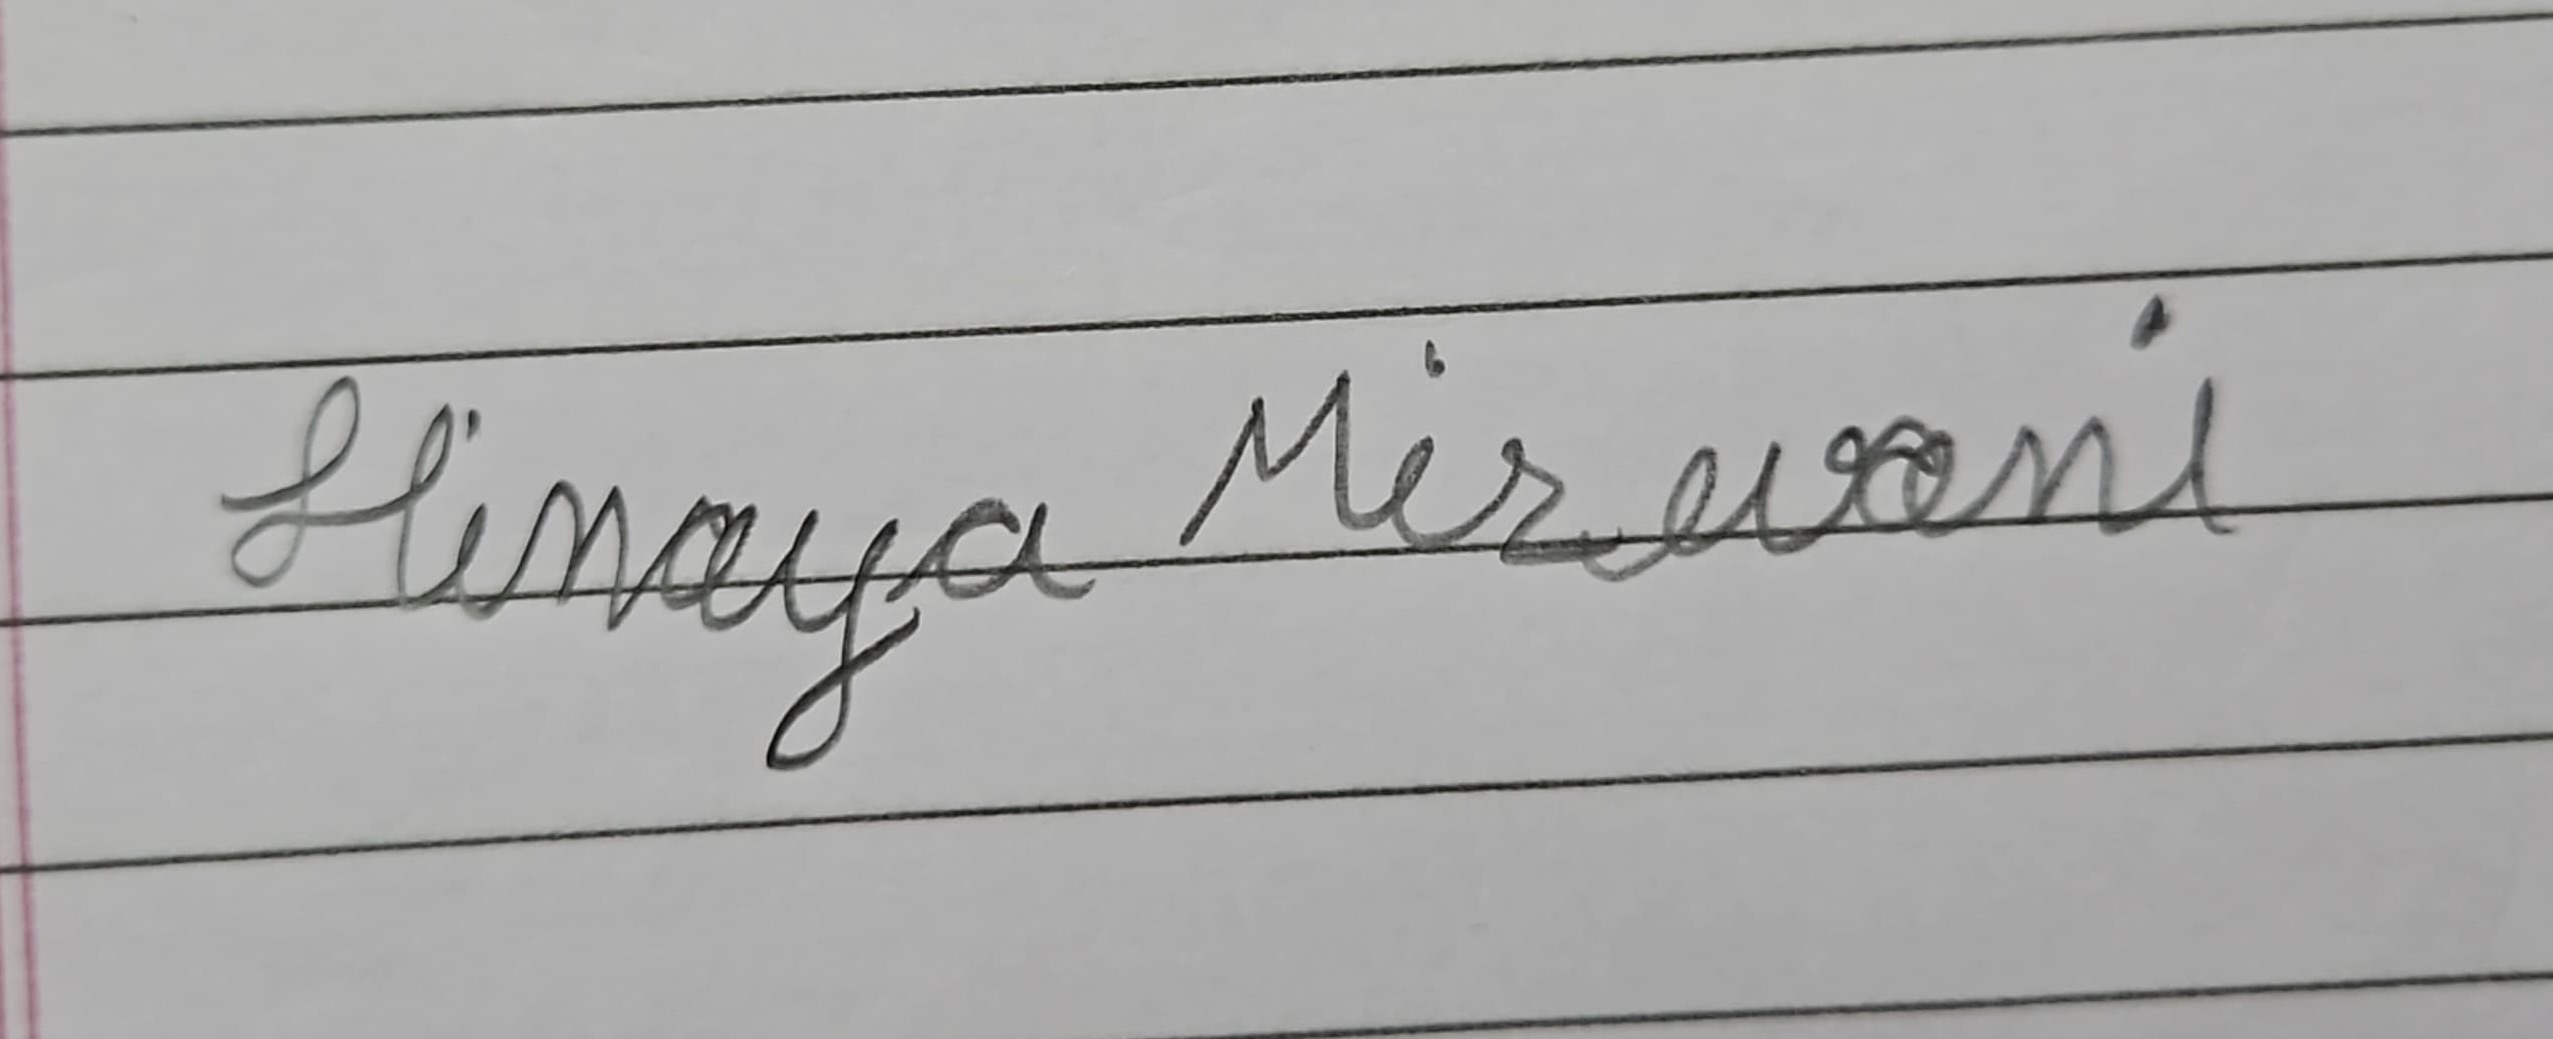 Hinaya Mirwani